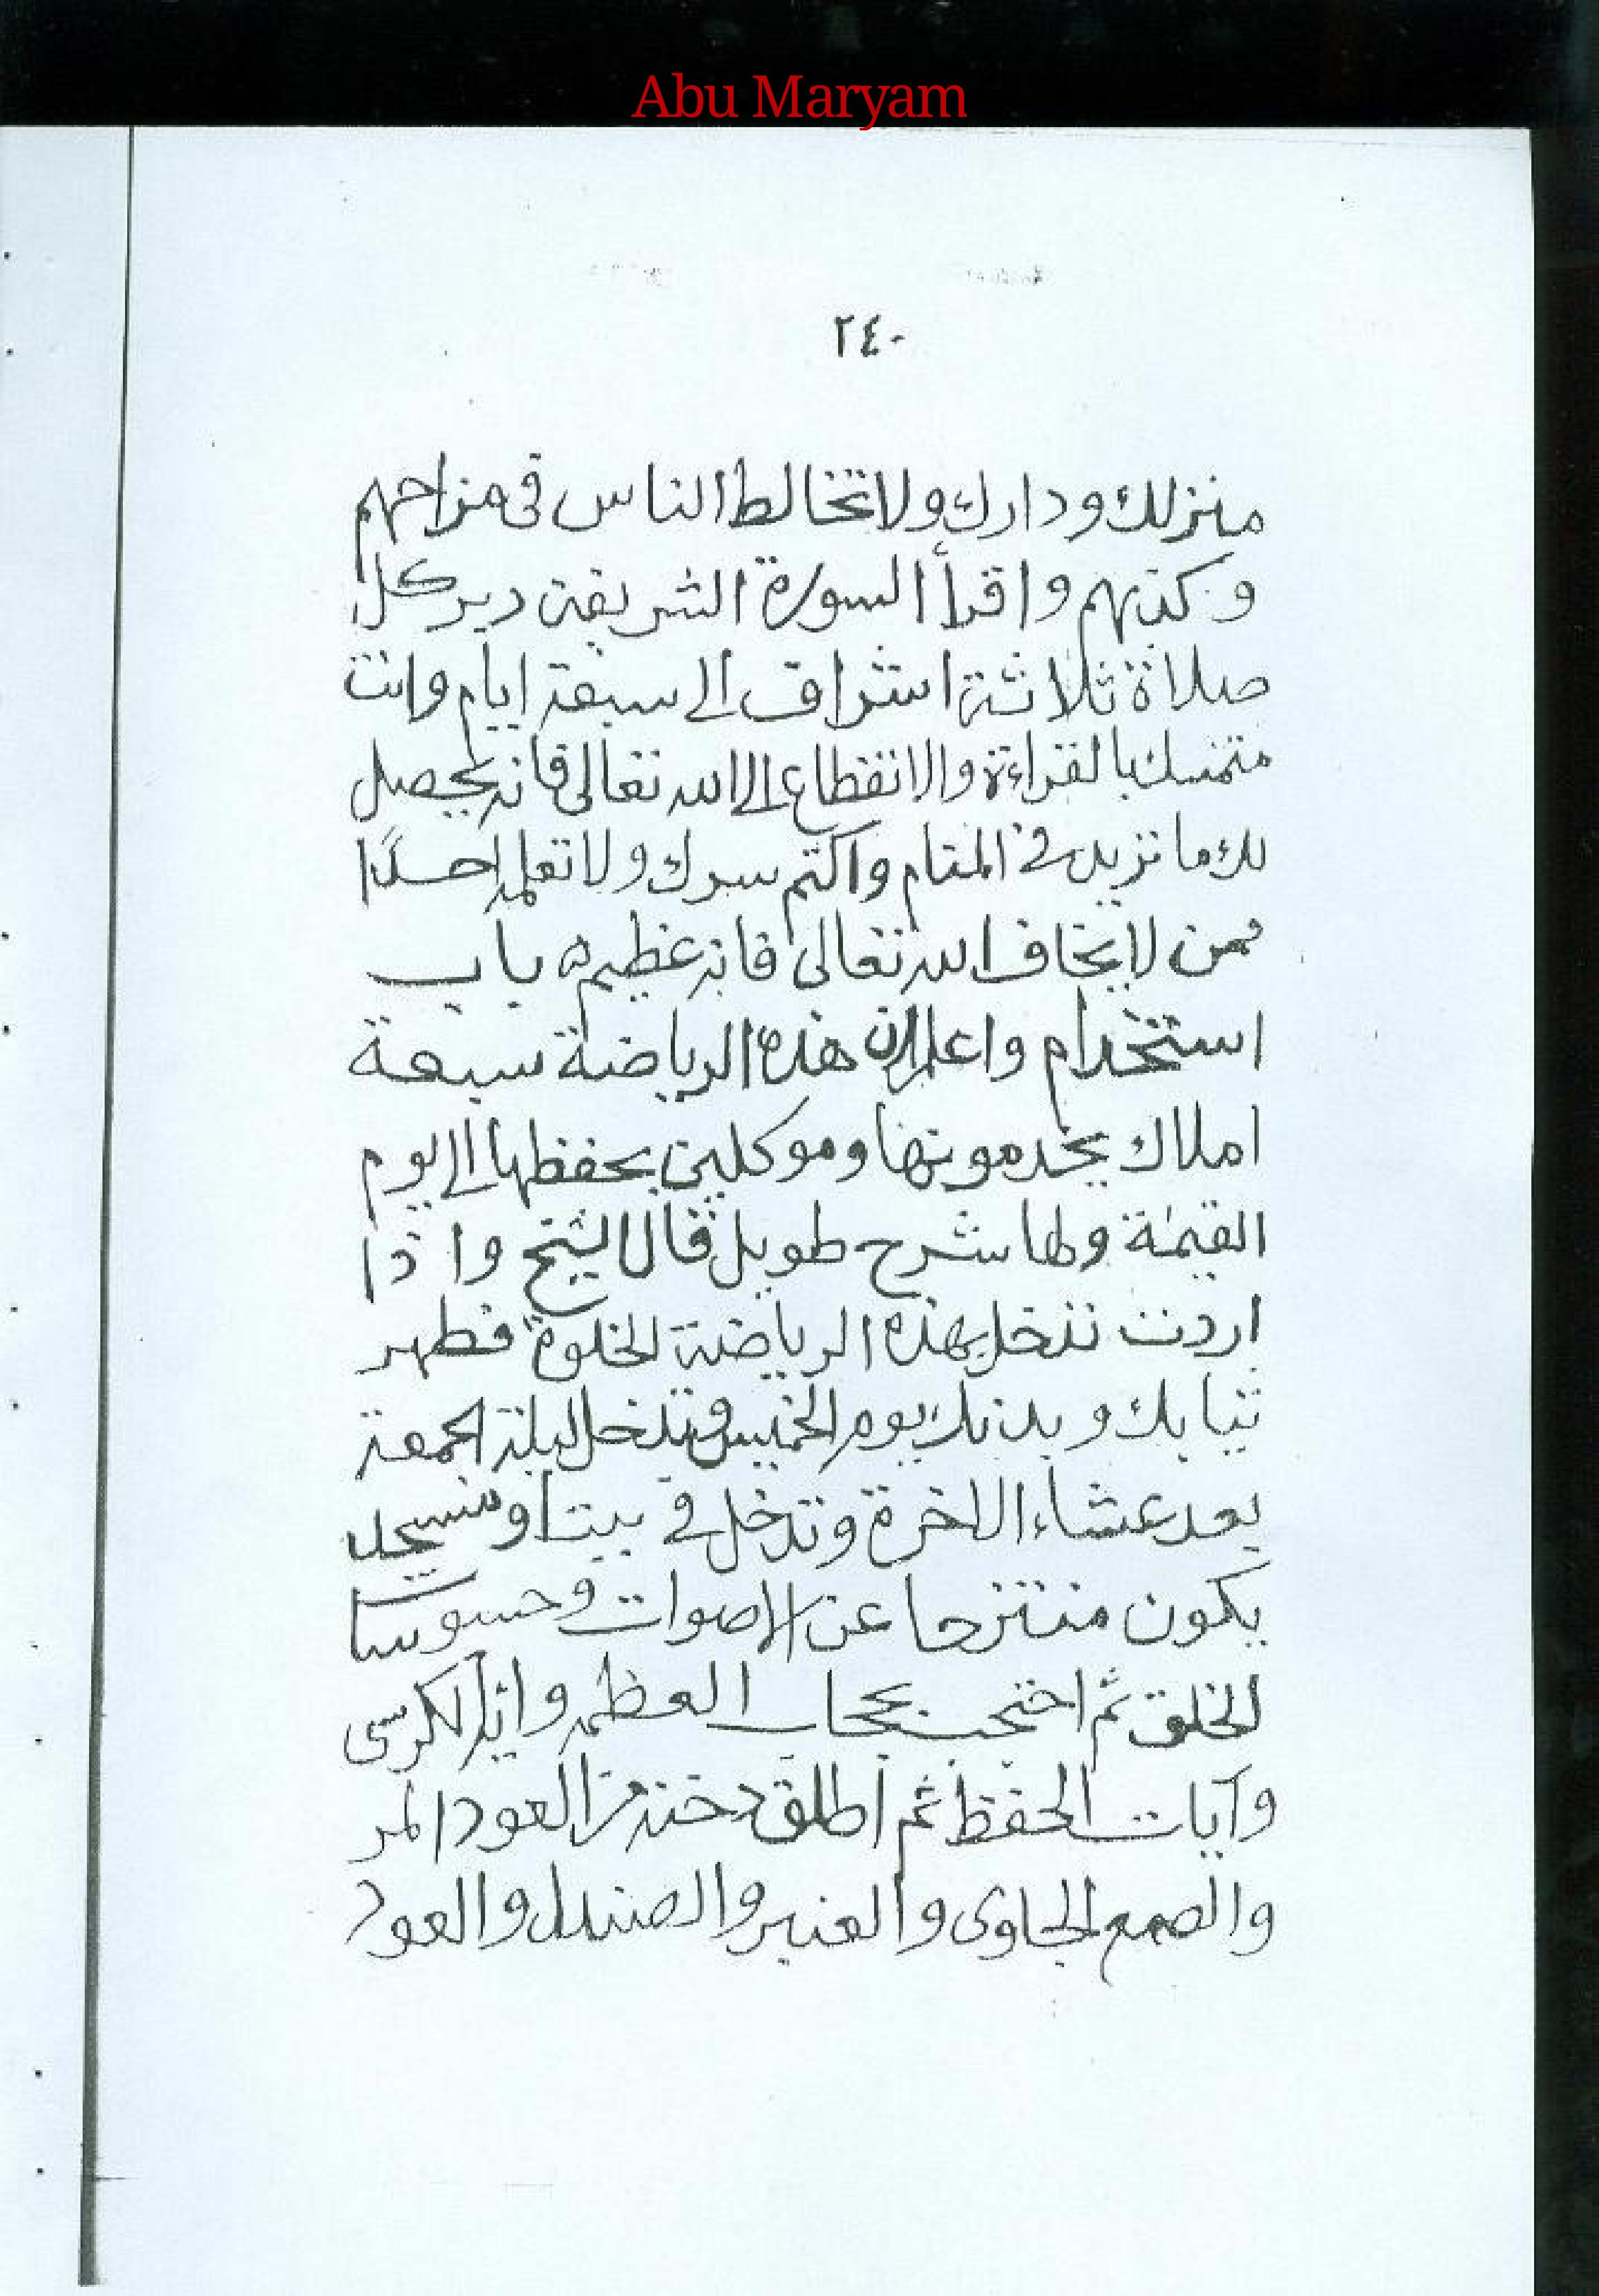 Abu Maryam
٢٤٠
منزلك ودارك ولا تخالط الناس في مزاحهم
وكذبهم واقرأ السورة الشريفة دبر كل
صلاة ثلاثة اشراف الى سبعة ايام وانت
متمسك بالقراءة والانقطاع الى الله تعالى فانه يحصل
لك ما تريد في المنام واكتم سرك ولا تعلمه احداً
ممن لا يخاف الله تعالى فانه عظيم باب
استخدام واعلم ان هذه الرياضة سبعة
املاك يخدمونها وموكلين بحفظها الى يوم
القيمة ولها شرح طويل قال الشيخ واذا
اردت تدخل بهذه الرياضة الخلوة فطهر
ثيابك وبدنك يوم الخميس وتدخل ليلة الجمعة
بعد عشاء الاخرة وتدخل في بيت او مسجد
يكون منتزحا عن الاصوات وحسوسات
الخلق ثم احتجب بحجاب العظمه واية الكرسى
وآيات الحفظ ثم اطلق دخنه من العود المر
والصمع الجاوى والعنبر والصندل والعود